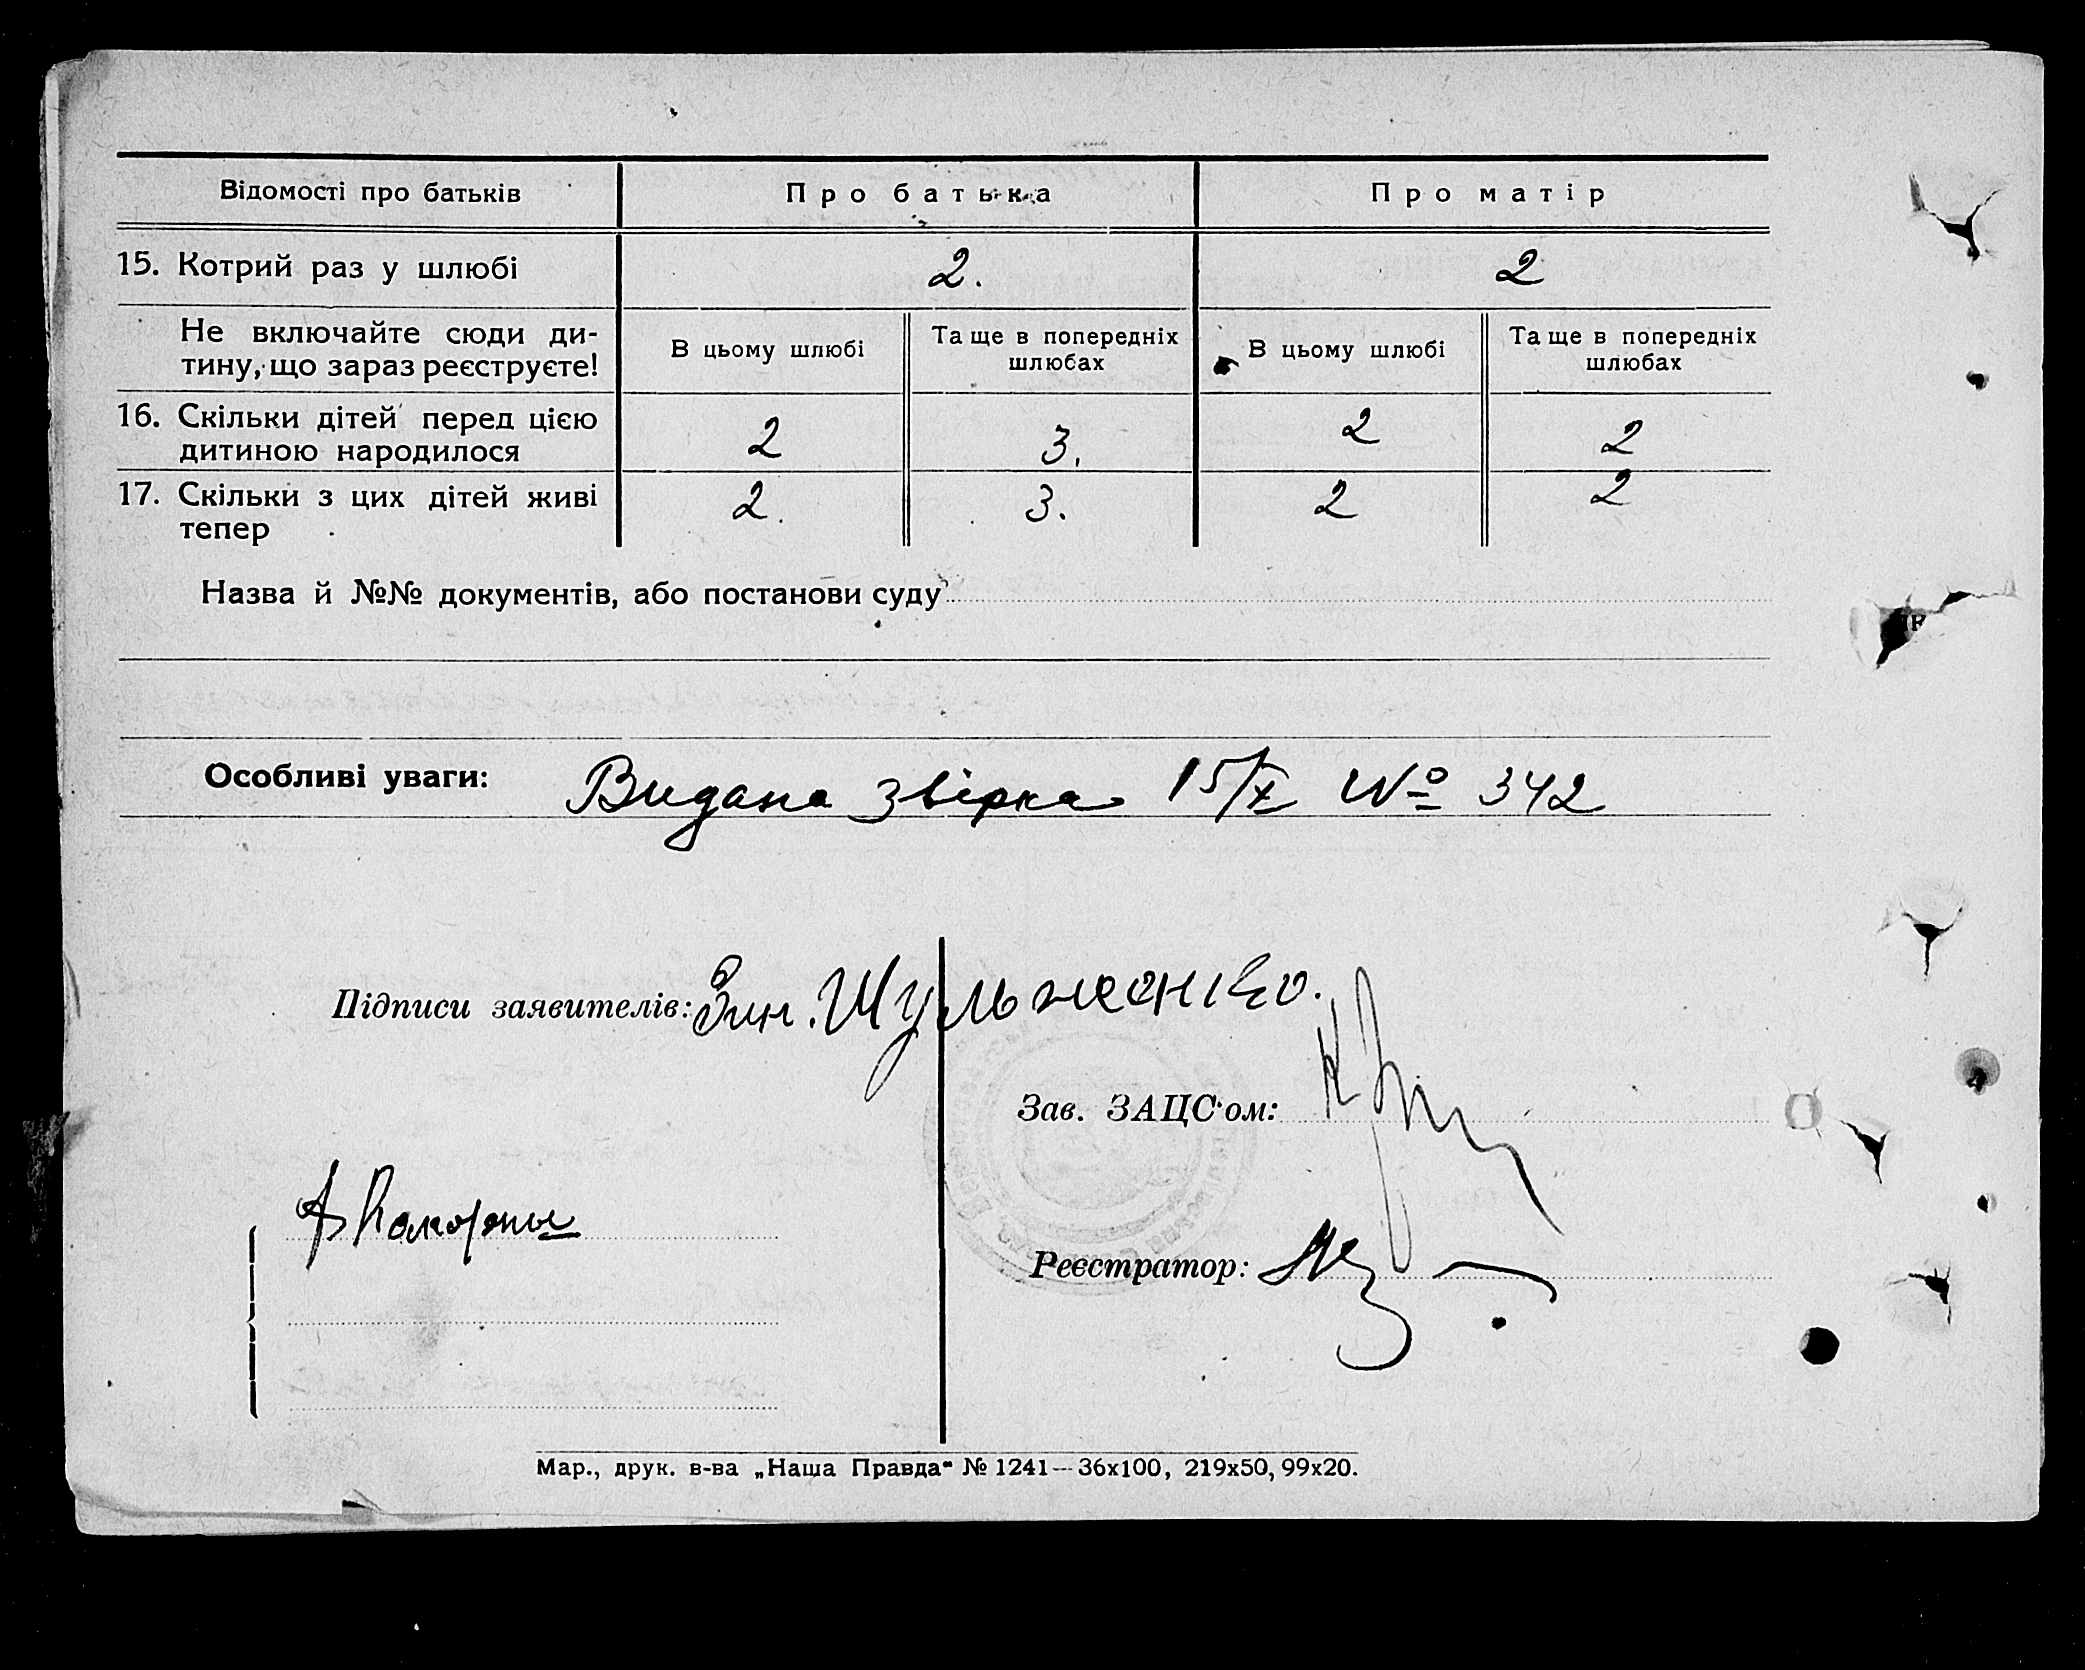 Відомості про батьків Про батька Про матір
15. Котрий раз у шлюбі 2. 2
Не включайте сюди ди-
тину, що зараз реєструєте!
В цьому шлюбі
Та ще в попередніх
шлюбах
В цьому шлюбі
Та ще в попередніх
шлюбах
16. Скільки дітей перед цією
дитиною народилося
2 3. 2 2
17. Скільки з цих дітей живі
тепер
2. 3. 2 2
Назва й №№ документів, або постанови суду
Особливі уваги: Видана звірка 15/X № 342
Підписи заявителів: Зин. Шульженко.
Зав. ЗАЦС'ом:
Реєстратор:
Мар., друк. в-ва „Наша Правда" № 1241—36х100, 219х50, 99х20.